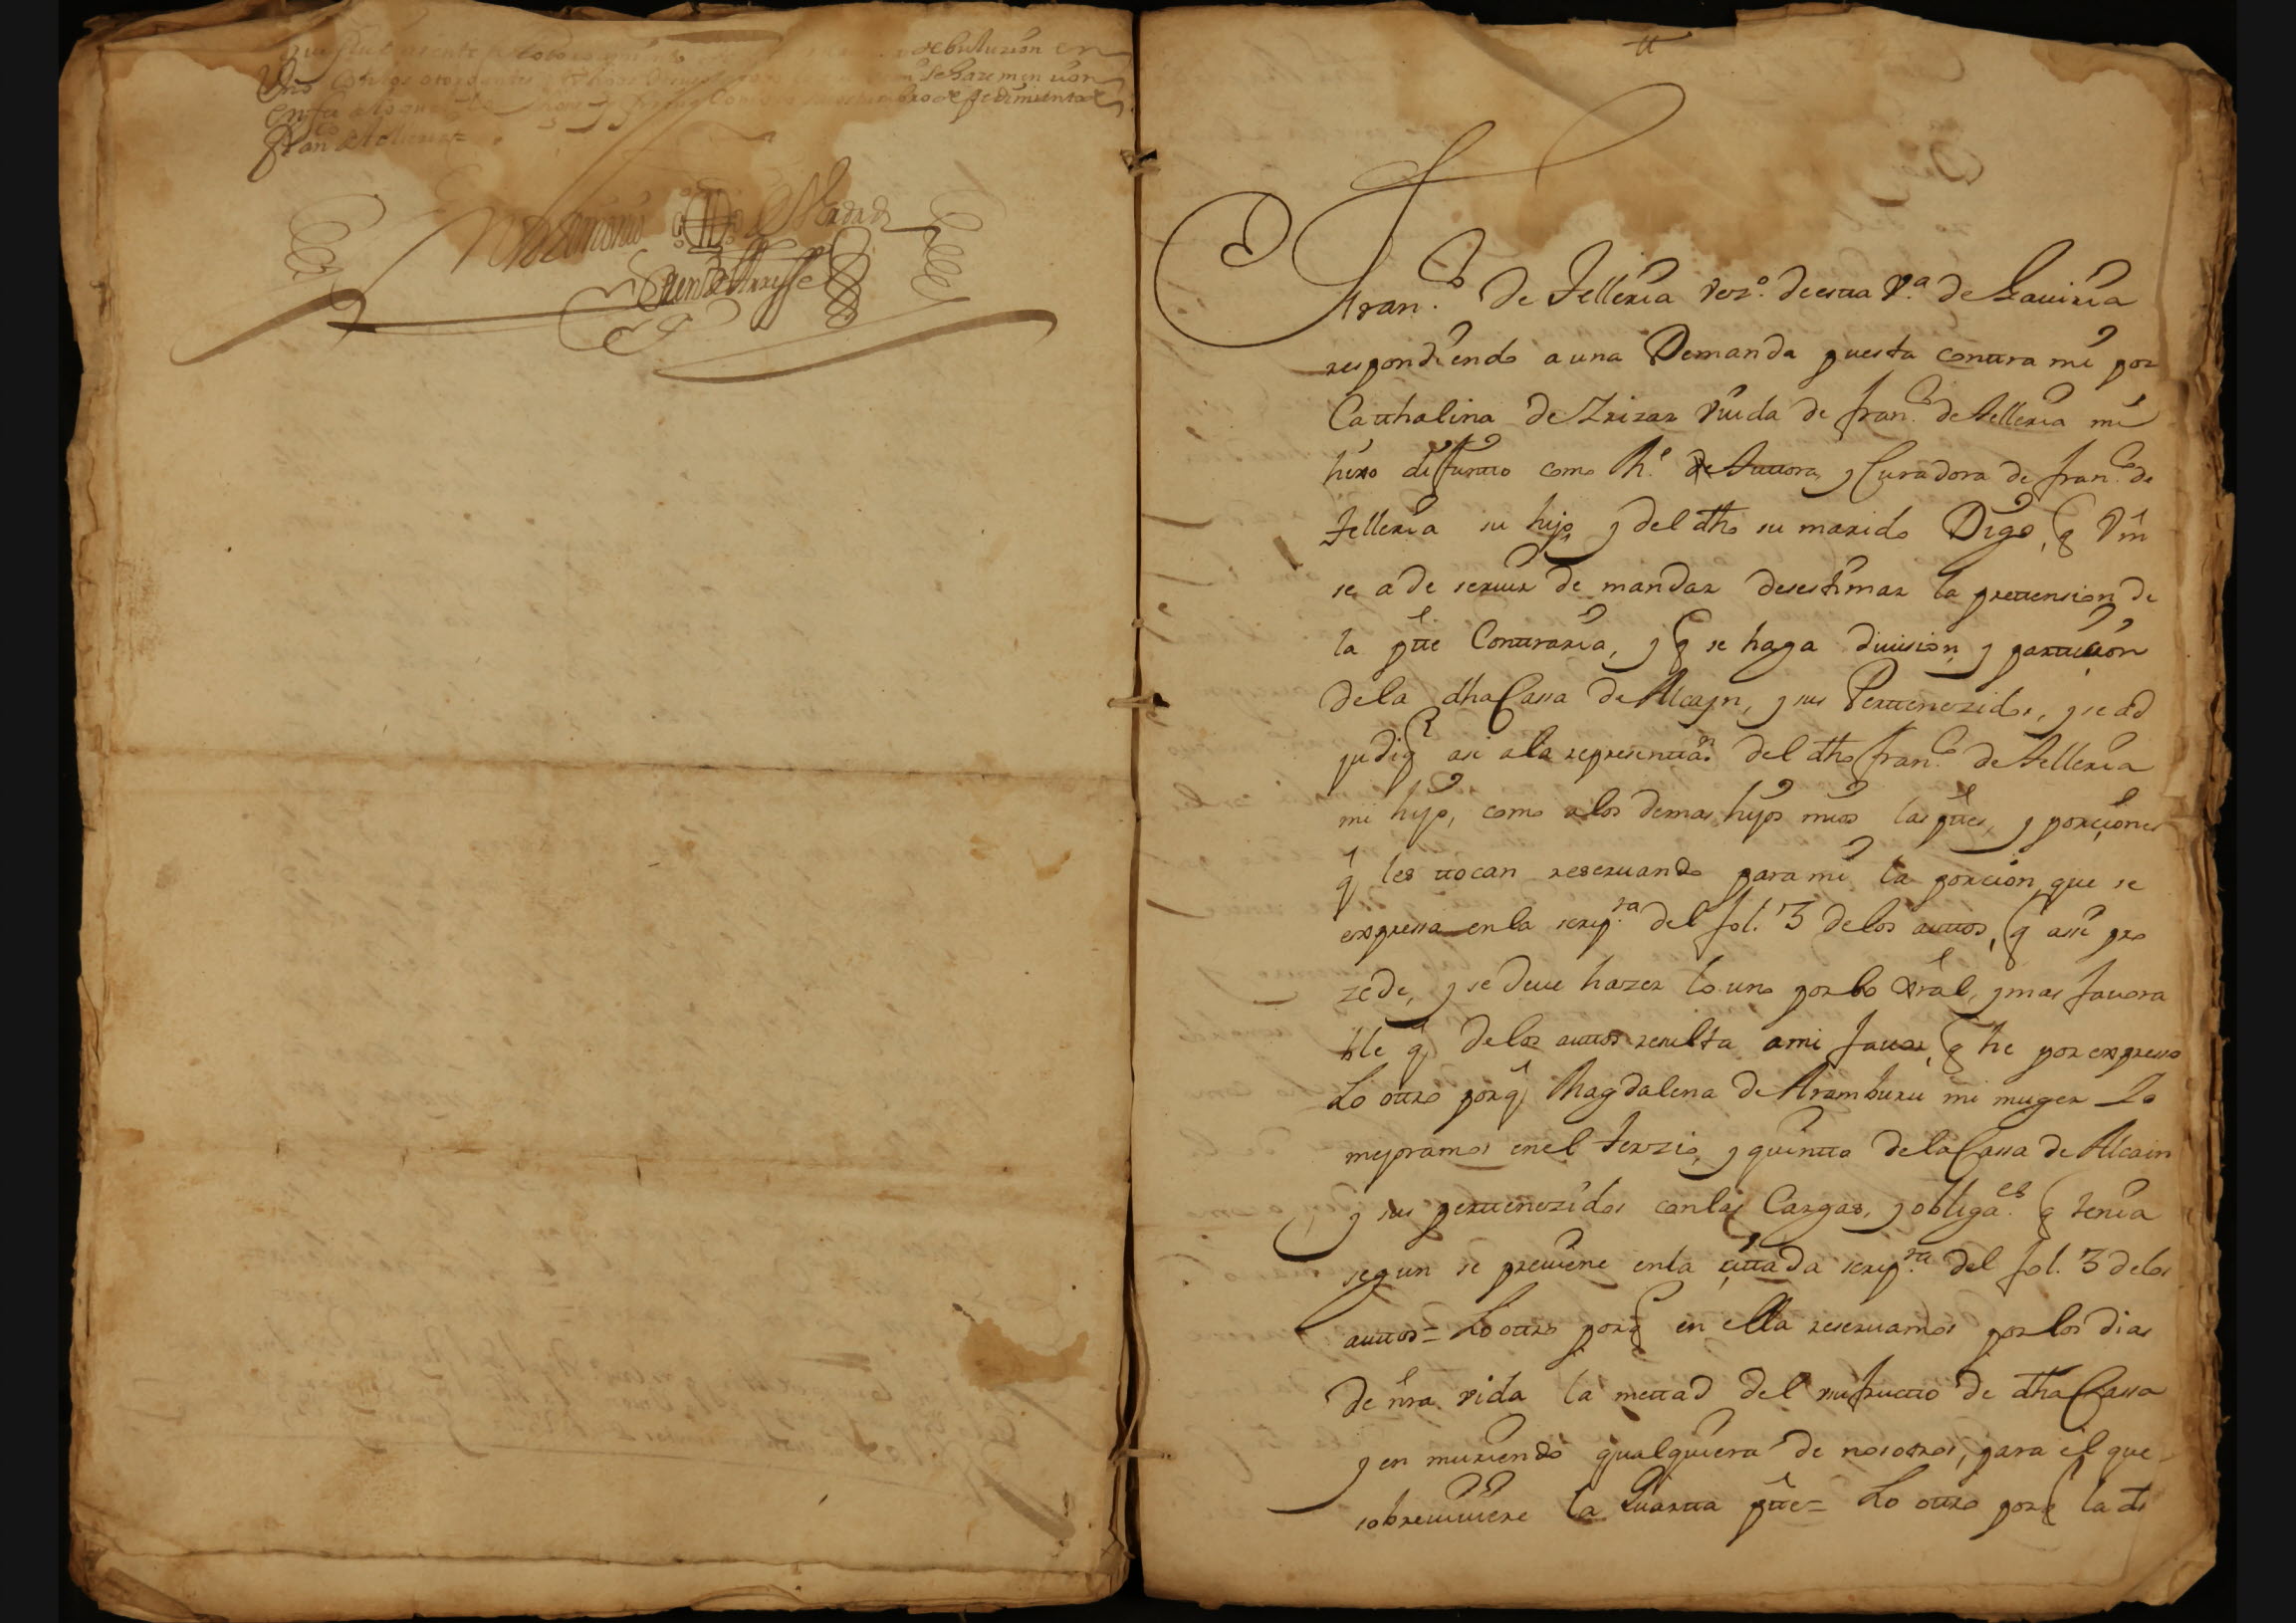 en
se haze mencion
pedimiento de
Fran.co de Telleria vez.o de esta V.a de Gauiria
respondiendo a una Demanda puesta contra mi por
Catthalina de Yrizar Viuda de fran.co de Telleria mi
hixo difuntto como M.e de Tuttora, y Curadora de fran.co de
Telleria su hijo, y del dho su marido Digo, q Vm
se a de seruir de mandar desestimar la prettension de
la ptte Contraria, y q se haga diuision, y particion
de la dha Cassa de Alcayn, y sus Perttenezidos, y se ad
judiq asi a la represenaz.n del dho fran.co de Telleria
mi hijo, como a los demas hijos mios las pttes, y porciones
q les ttocan reseruando para mi la porcion que se
expressa en la scrip.ra del fol. 3 de los auttos, q assi pro
zede, y se deue hazer lo uno por lo gral, y mas fauora
ble q de los auttos resulta a mi fauor, q he por expresso
Lo ottro porq Magdalena de Aramburu mi muger Yo
mejoramos en el terzio, y quintto de la Cassa de Alcain
y sus perttenezidos con las Cargas, y obliga.es q tenia
segun se preuiene en la cittada scrip.ra del fol. 3 de los
auttos = Lo ottro porq en ella reseruamos por los dias
de nra vida la mettad del vsufructto de dha Cassa
y en muriendo qualquiera de nosotros, para el que
sobreuiuiere la Quartta ptte = Lo ottro porq la di